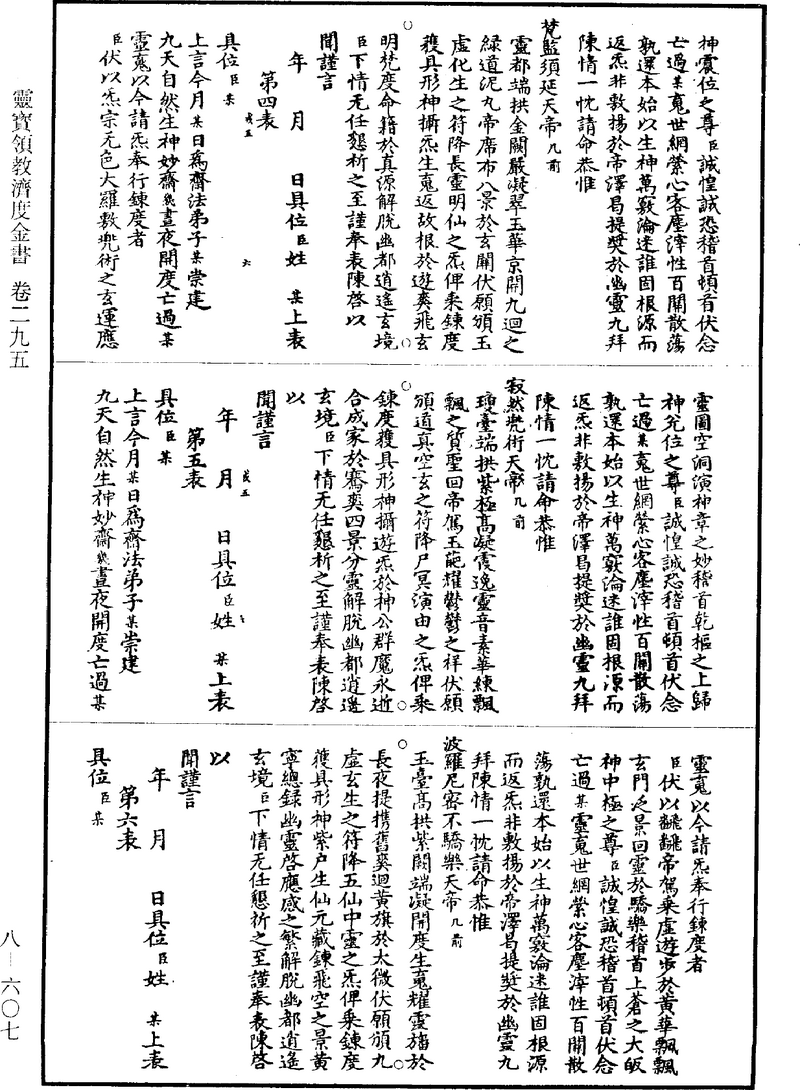 靈寶領教濟度金書 卷二九五
八—六〇七
神震位之尊臣誠惶誠恐稽首頓首伏念
亡過某寃世網縈心客塵滓性百關散蕩
孰還本始以生神萬竅淪迷誰固根源而
返炁非敷揚於帝澤曷提奬於幽靈九拜
陳情一忱請命恭惟
梵監須延天帝几前
靈都端拱金闕嚴凝翠玉華京開九迴之
緑道泥丸帝席布八景於玄關伏願頒玉
虛化生之符降長靈明仙之炁俾乘鍊度
穫具形神攝炁生寃返故根於遊爽飛玄
明梵度命籍於真源解脫幽都逍遙玄境
臣下情无任懇祈之至謹奉表陳啓以
聞謹言
年 月 日具位臣姓 某上表
第四表
具位臣某
上言今月某日爲齋法弟子某崇建
九天自然生神妙齋幾晝夜開度亡過某
靈寃以今請炁奉行鍊度者
臣伏以炁宗无色大羅敷兜術之玄運應
靈圖空洞演神章之妙稽首乾樞之上歸
神兊位之尊臣誠惶誠恐稽首頓首伏念
亡過某寃世網縈心客塵滓性百關散蕩
孰還本始以生神萬竅淪迷誰固根源而
返炁非敷揚於帝澤曷提奬於幽靈九拜
陳情一忱請命恭惟
寂然兜術天帝几前
瓊臺端拱紫極高凝霞逸靈音素華練飄
飄之質聖回帝駕玉葩耀鬱鬱之祥伏願
頒道真空玄之符降尸冥演由之炁俾乘
鍊度穫具形神攝遊炁於神公群魔永逝
合成家於騫爽四景分靈解脫幽都逍遙
玄境臣下情无任懇祈之至謹奉表陳啓
以
聞謹言
年 月 日具位臣姓 某上表
第五表
具位臣某
上言今月某日爲齋法弟子某崇建
九天自然生神妙齋幾晝夜開度亡過某
靈寃以今請炁奉行鍊度者
臣伏以飜飜帝駕乘虛遊步於黃華飄飄
玄門之景回靈於驕樂稽首上蒼之大皈
神中極之尊臣誠惶誠恐稽首頓首伏念
亡過某靈寃世網縈心客塵滓性百關散
蕩孰還本始以生神萬竅淪迷誰固根源
而返炁非敷揚於帝澤曷提奬於幽靈九
拜陳情一忱請命恭惟
波羅尼密不驕樂天帝几前
玉臺高拱紫闕端凝開度生寃耀靈旛於
長夜提携舊爽迴黃旗於太微伏願頒九
虛玄生之符降五仙中靈之炁俾乘鍊度
穫具形神紫户生仙元藏鍊飛空之景黃
寧總録幽靈啓應感之繁解脫幽都逍遙
玄境臣下情无任懇祈之至謹奉表陳啓
以
聞謹言
年 月 日具位臣姓 某上表
第六表
具位臣某